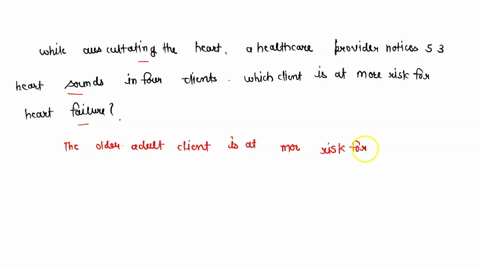 while auscultating the heart, a healthcare provider notices S3
heart sounds in four clients. which client is at more risk for
heart failure?
The older adult client is at mor risk for